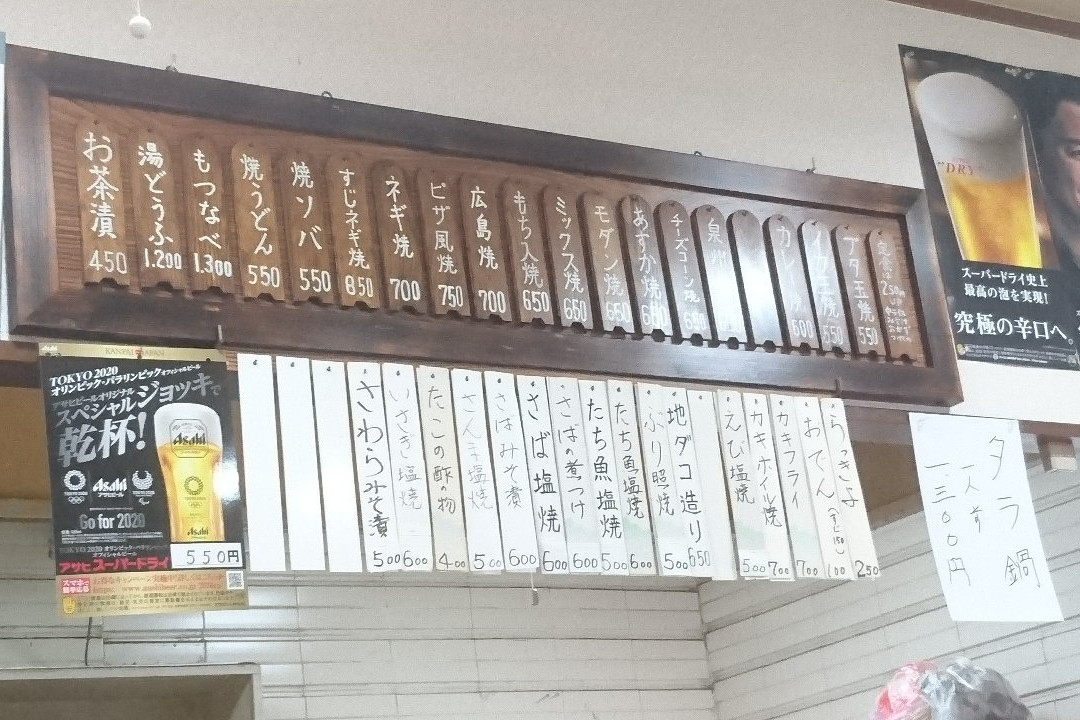 お茶漬 450
湯どうふ 1.200
もつなべ 1.300
焼うどん 550
焼ソバ 550
すじネギ焼 850
ネギ焼 700
ピザ風焼 750
広島焼 700
もち入焼 650
ミックス焼 650
モダン焼 650
あすか焼 650
チーズコーン焼 650
泉州
カレー 600
イカ玉焼 550
ブタ玉焼 550
"DRY"
スーパードライ史上
最高の泡を実現!
究極の辛口へ。
KANPAI JAPAN
TOKYO 2020
オリンピック・パラリンピックオフィシャルビール
アサヒビールオリジナル
スペシャルジョッキで
乾杯!
Asahi
TOKYO 2020
アサヒビール
Go for 2020
Asahi
Asahi
TOKYO 2020 オリンピック・パラリンピック
オフィシャルビール
アサヒスーパードライ
550円
さわらみそ漬 500
いさぎ塩焼 600
たこの酢の物 400
さんま塩焼 500
さばみそ漬 600
さば塩焼 600
さばの煮つけ 600
たち魚塩焼 500
たち魚塩焼 600
ぶり照焼 500
地ダコ造り 650
えび塩焼 500
カキホイル焼 700
カキフライ 700
おでん 100
らっきょ 250
タラ鍋
一人前
一三〇〇円